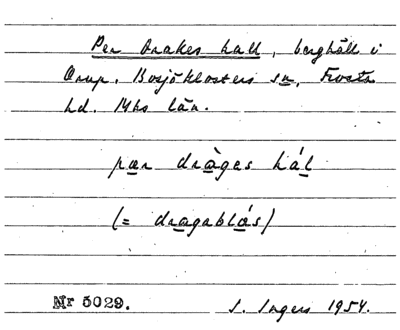 Per Drakes hall, berghäll i
Orup, Bosjöklosters sn, Frosta
hd. Mhs län.
pær dràges hál
(= dragablás)
Nr 5029. I. Ingers 1954.